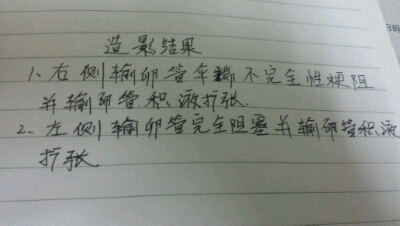 造影结果
1、右侧输卵管伞端不完全性梗阻
并输卵管积液扩张.
2、左侧输卵管完全阻塞并输卵管积液
扩张